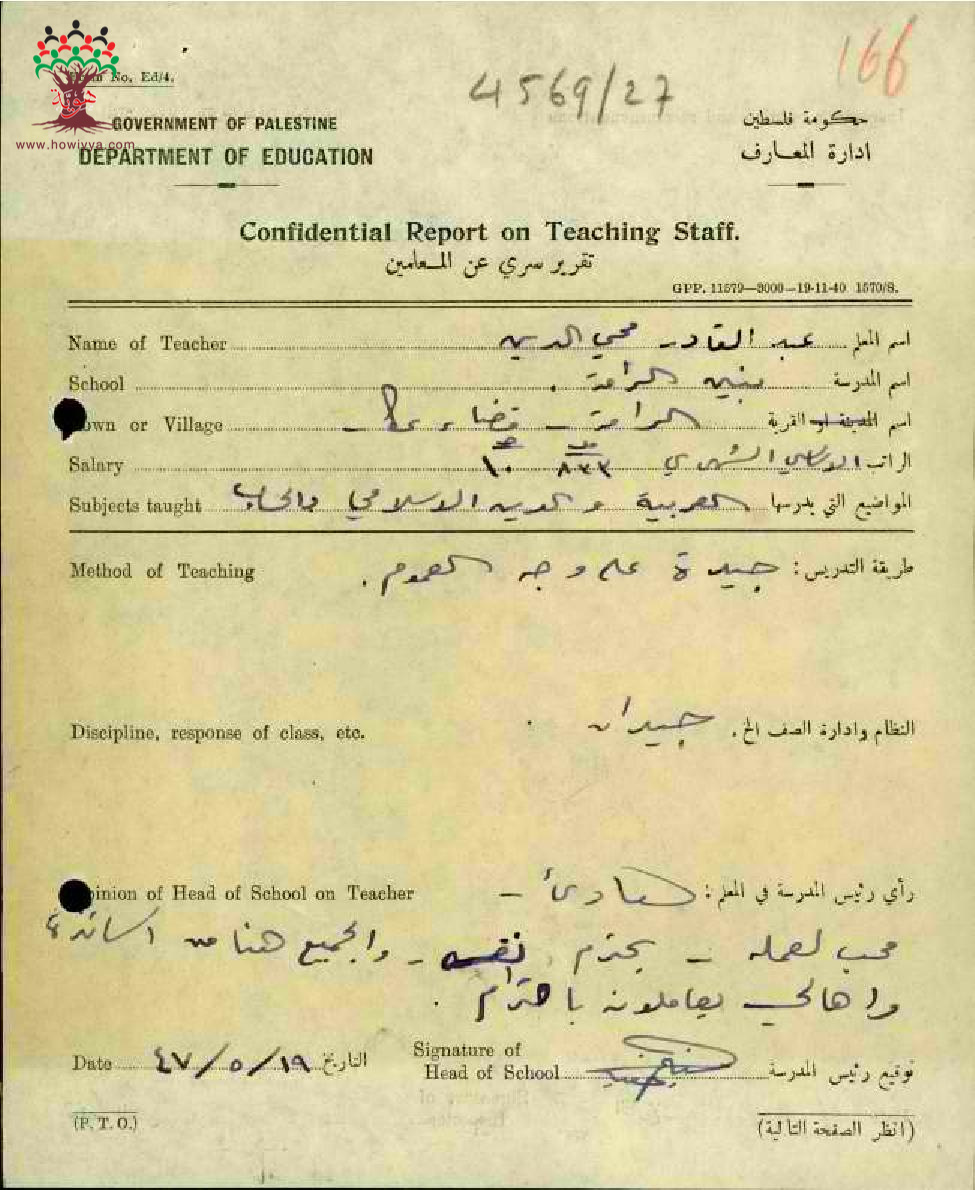 166
4569/27
Form No. Ed/4.
GOVERNMENT OF PALESTINE
حكومة فلسطين
www.howiyya.com
DEPARTMENT OF EDUCATION
ادارة المعارف
Confidential Report on Teaching Staff.
تقرير سري عن المعلمين
GPP. 11579—3000—19-11-40 1570/S.
Name of Teacher عبد القادر محي الدين اسم المعلم
School بنين الرامة . اسم المدرسة
Town or Village الرامة - قضاء عكا - اسم المدينة او القرية
Salary ١٠ ٨٣٣ الاساسي الشهري الراتب
Subjects taught العربية و الدين الاسلامي والحساب المواضيع التي يدرسها
Method of Teaching جيدة على وجه العموم . طريقة التدريس :
Discipline, response of class, etc. جيدان . النظام وادارة الصف الخ .
Opinion of Head of School on Teacher هادئ - رأي رئيس المدرسة في المعلم :
محب لعمله - يحترم نفسه - والجميع هنا من اساتذة
واهالي يعاملونه باحترام .
Date ١٩/٥/٤٧ التاريخ
Signature of
Head of School توقيع رئيس المدرسة
(P. T. O.)
(انظر الصفحة التالية)